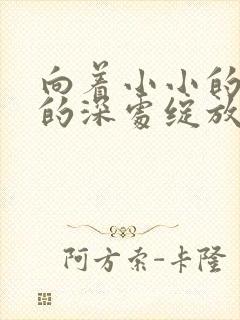 向着小小的
的深处绽放
阿方索-卡隆